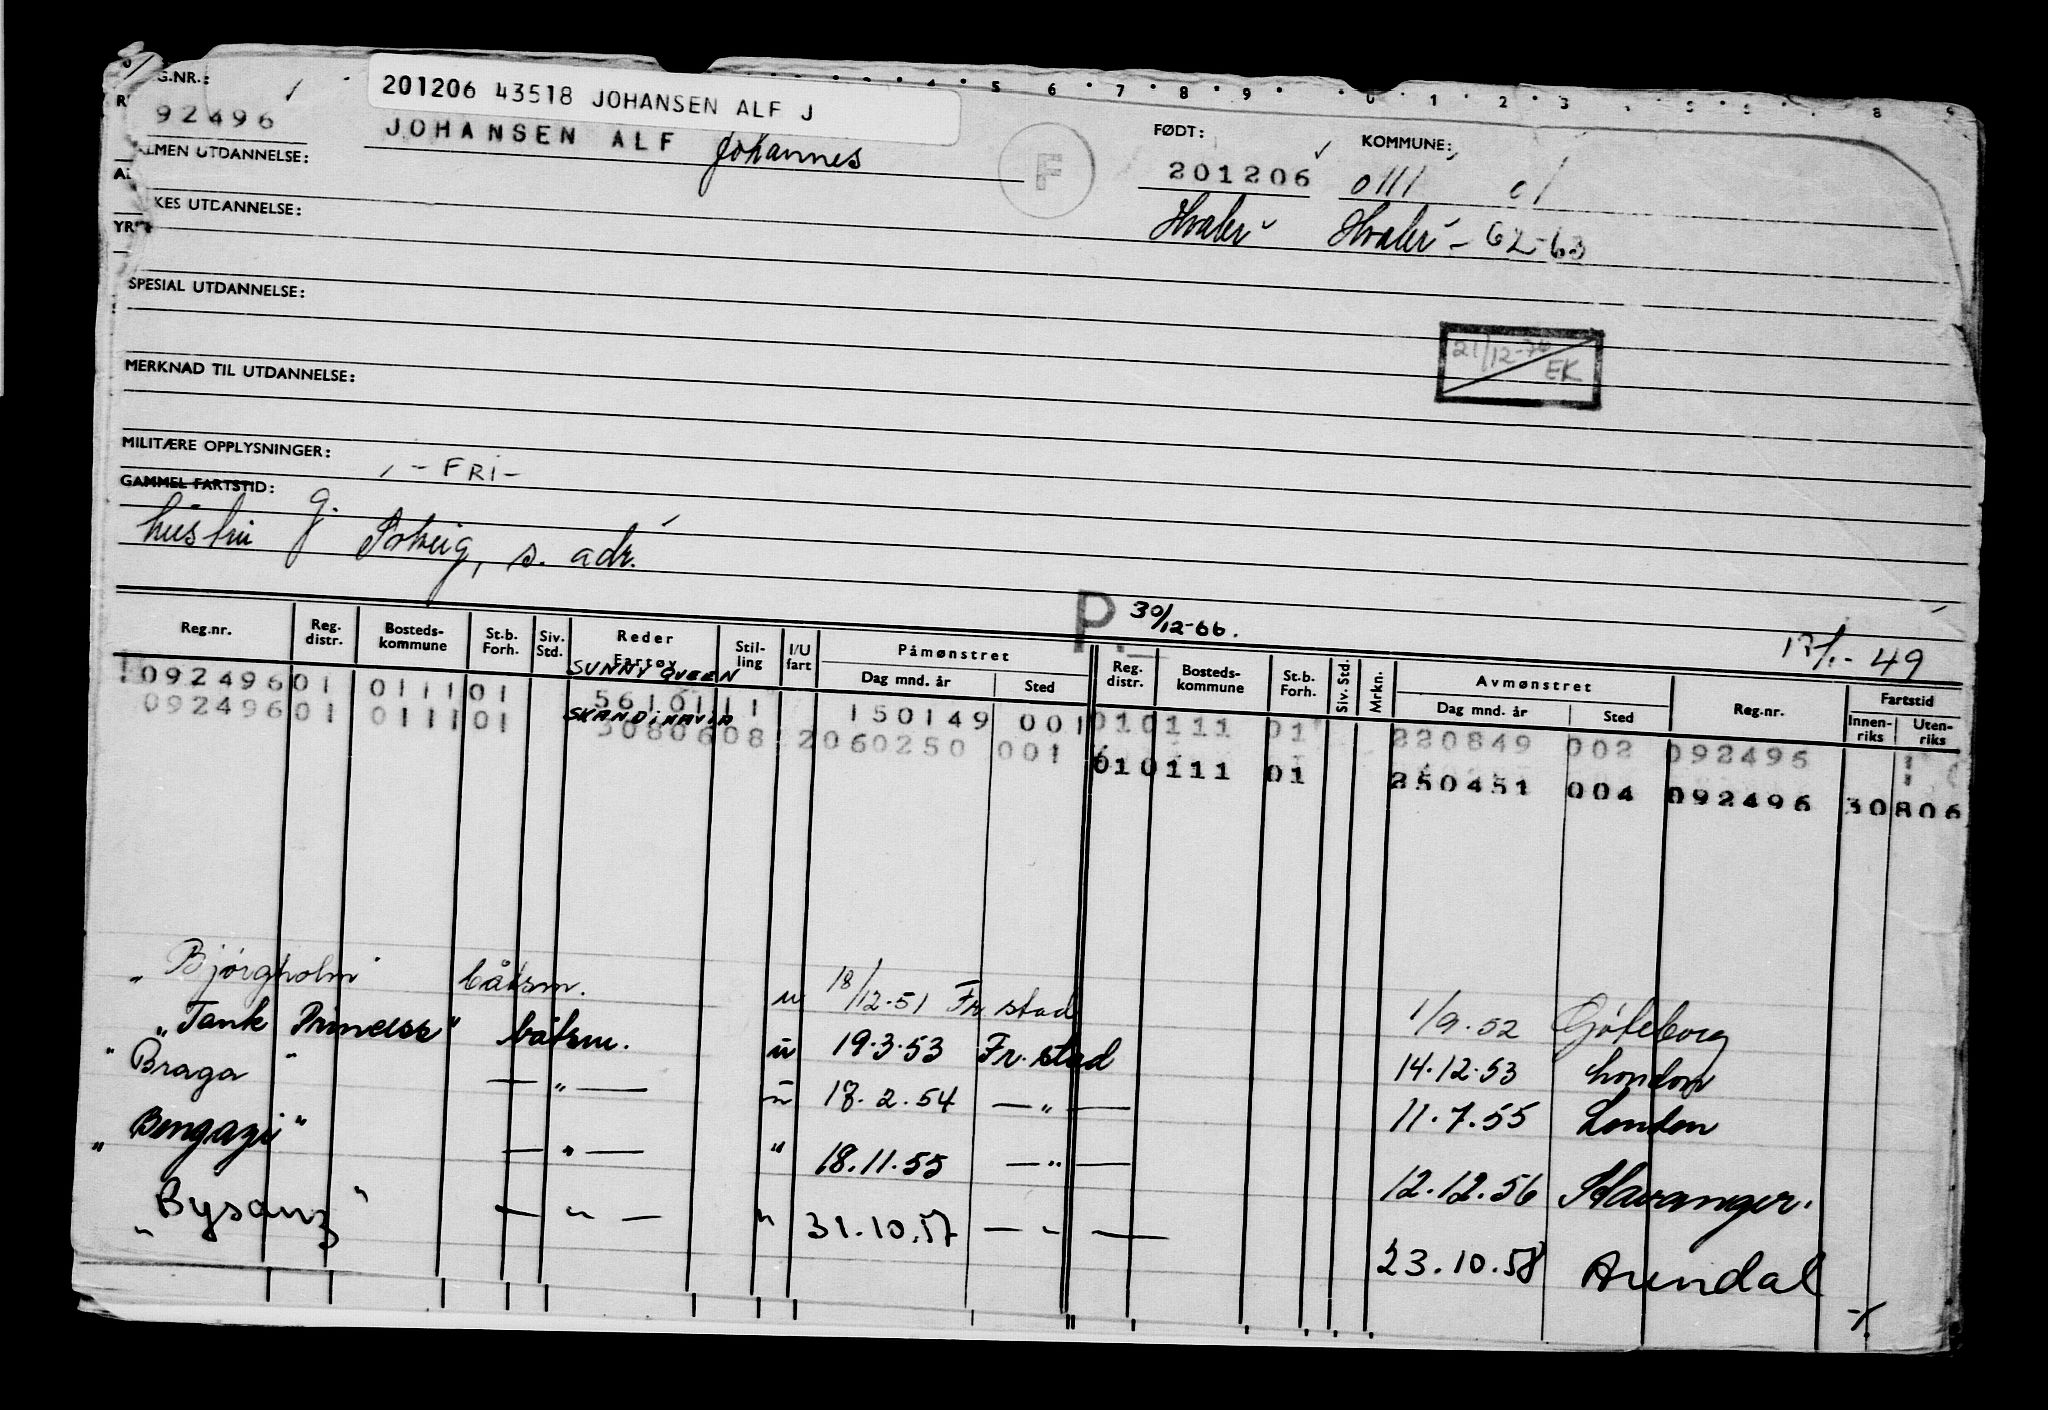 201206 43518 JOHANSEN ALF J
REG.NR.: 92496
JOHANSEN ALF Johannes
F
FØDT: 201206
KOMMUNE: 0111 01
Hvaler Hvaler - 62-63
ALMEN UTDANNELSE:
YRKES UTDANNELSE:
SPESIAL UTDANNELSE:
21/12-76 EK
MERKNAD TIL UTDANNELSE:
MILITÆRE OPPLYSNINGER: - FRI -
GAMMEL FARTSTID:
hustru g. Solveig, s. adr.
P. 30/12-66.
12/1.- 49
Reg.nr. Reg. distr. Bosteds-kommune St.b. Forh. Siv. Std. Reder Fartøy Stil-ling I/U fart Påmønstret Dag mnd. år Sted Reg. distr. Bosteds-kommune St.b. Forh. Siv. Std. Mrkn. Avmønstret Dag mnd. år Sted Reg.nr. Fartstid Innen-riks Uten-riks
092496 01 0111 01 SUNNY QUEEN 5616111 150149 001 010111 01 220849 002 092496
092496 01 0111 01 SKANDINAVIA 3080608 2 060250 001 010111 01 250451 004 092496 30806
"Bjørgholm" båtsm. u 18/12.51 Fr.stad 1/9.52 Göteborg
"Tank Princess" båtsm. u 19.3.53 Fr.stad 14.12.53 London
"Braga" — " — u 18.2.54 — " — 11.7.55 London
"Bengazi" — " — " 18.11.55 — " — 12.12.56 Stavanger.
"Bysanz" — " — " 31.10.57 — " — 23.10.58 Arendal